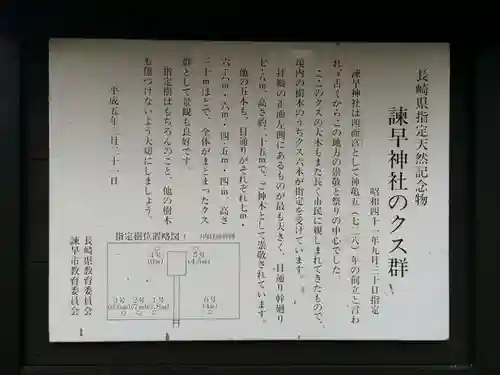 長崎県指定天然記念物
諫早神社のクス群
昭和四十一年九月三十日指定
諫早神社は四面宮として神亀五(七二八)年の創立と言わ
れ、古くからこの地方の崇敬と祭りの中心でした。
ここのクスの大木もまた長く市民に親しまれてきたもので、
境内の樹木のうちクス六本が指定を受けています。
拝殿の正面左側にあるものが最も大きく、目通り幹廻り
七・八m、高さ約二十五mで、ご神木として崇敬されています。
他の五本も、目通りがそれぞれ七m・
六・六m・六m・四・五m・四m、高さ
二十mほどで、全体がまとまったクス
群として景観も良好です。
指定樹はもちろんのこと、他の樹木
も傷つけないよう大切にしましょう。
平成五年三月三十一日
長崎県教育委員会
諫早市教育委員会
指定樹位置略図
4号
(6m)
5号
(4.5m)
3号
2号
(7m)
1号
(7.8m)
6号
(4m)